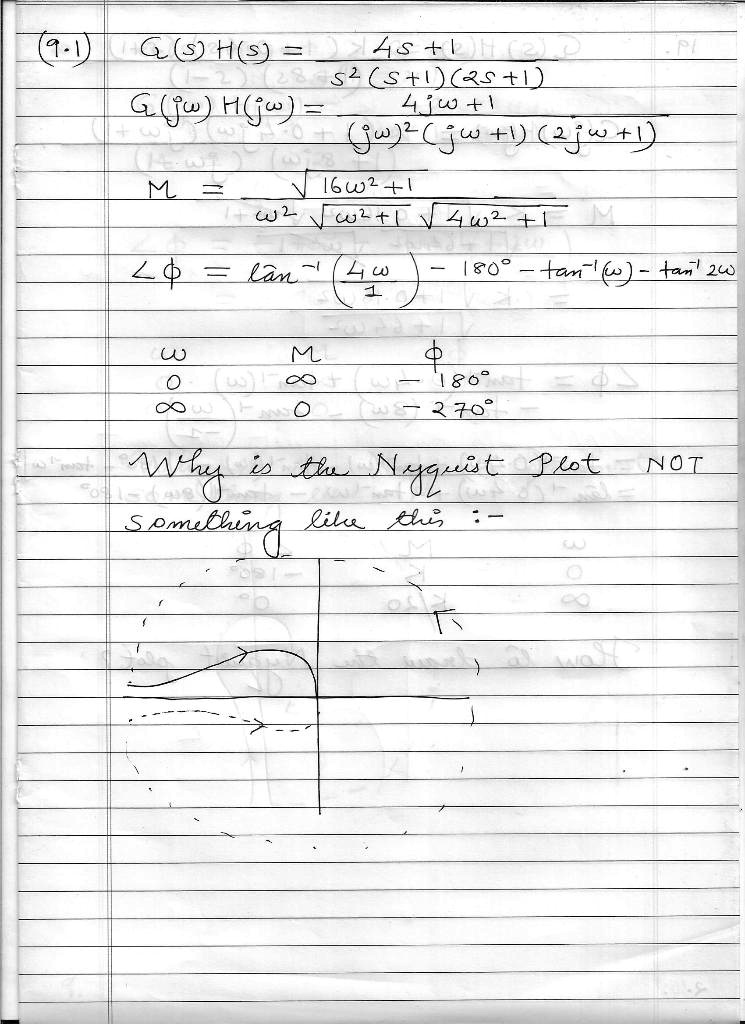 (9.1) G(s) H(s) = 4s + 1 / s² (s+1) (2s+1)
G(jω) H(jω) = 4jω + 1 / (jω)² (jω + 1) (2jω + 1)
M = √16ω² + 1 / ω² √ω² + 1 √4ω² + 1
∠ϕ = tan⁻¹ (4ω / 1) – 180° – tan⁻¹(ω) – tan⁻¹ 2ω
ω M ϕ
0 ∞ – 180°
∞ 0 – 270°
Why is the Nyquist Plot NOT
something like this :–